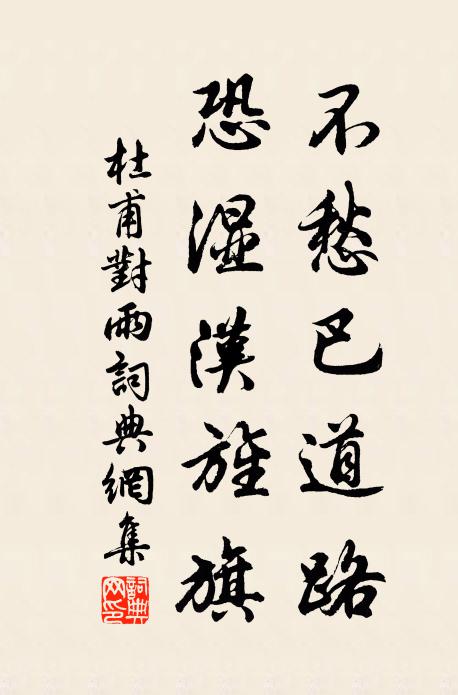 不愁巴道路
恐湿漢旌旗
杜甫對雨詞典網集
詞典网印